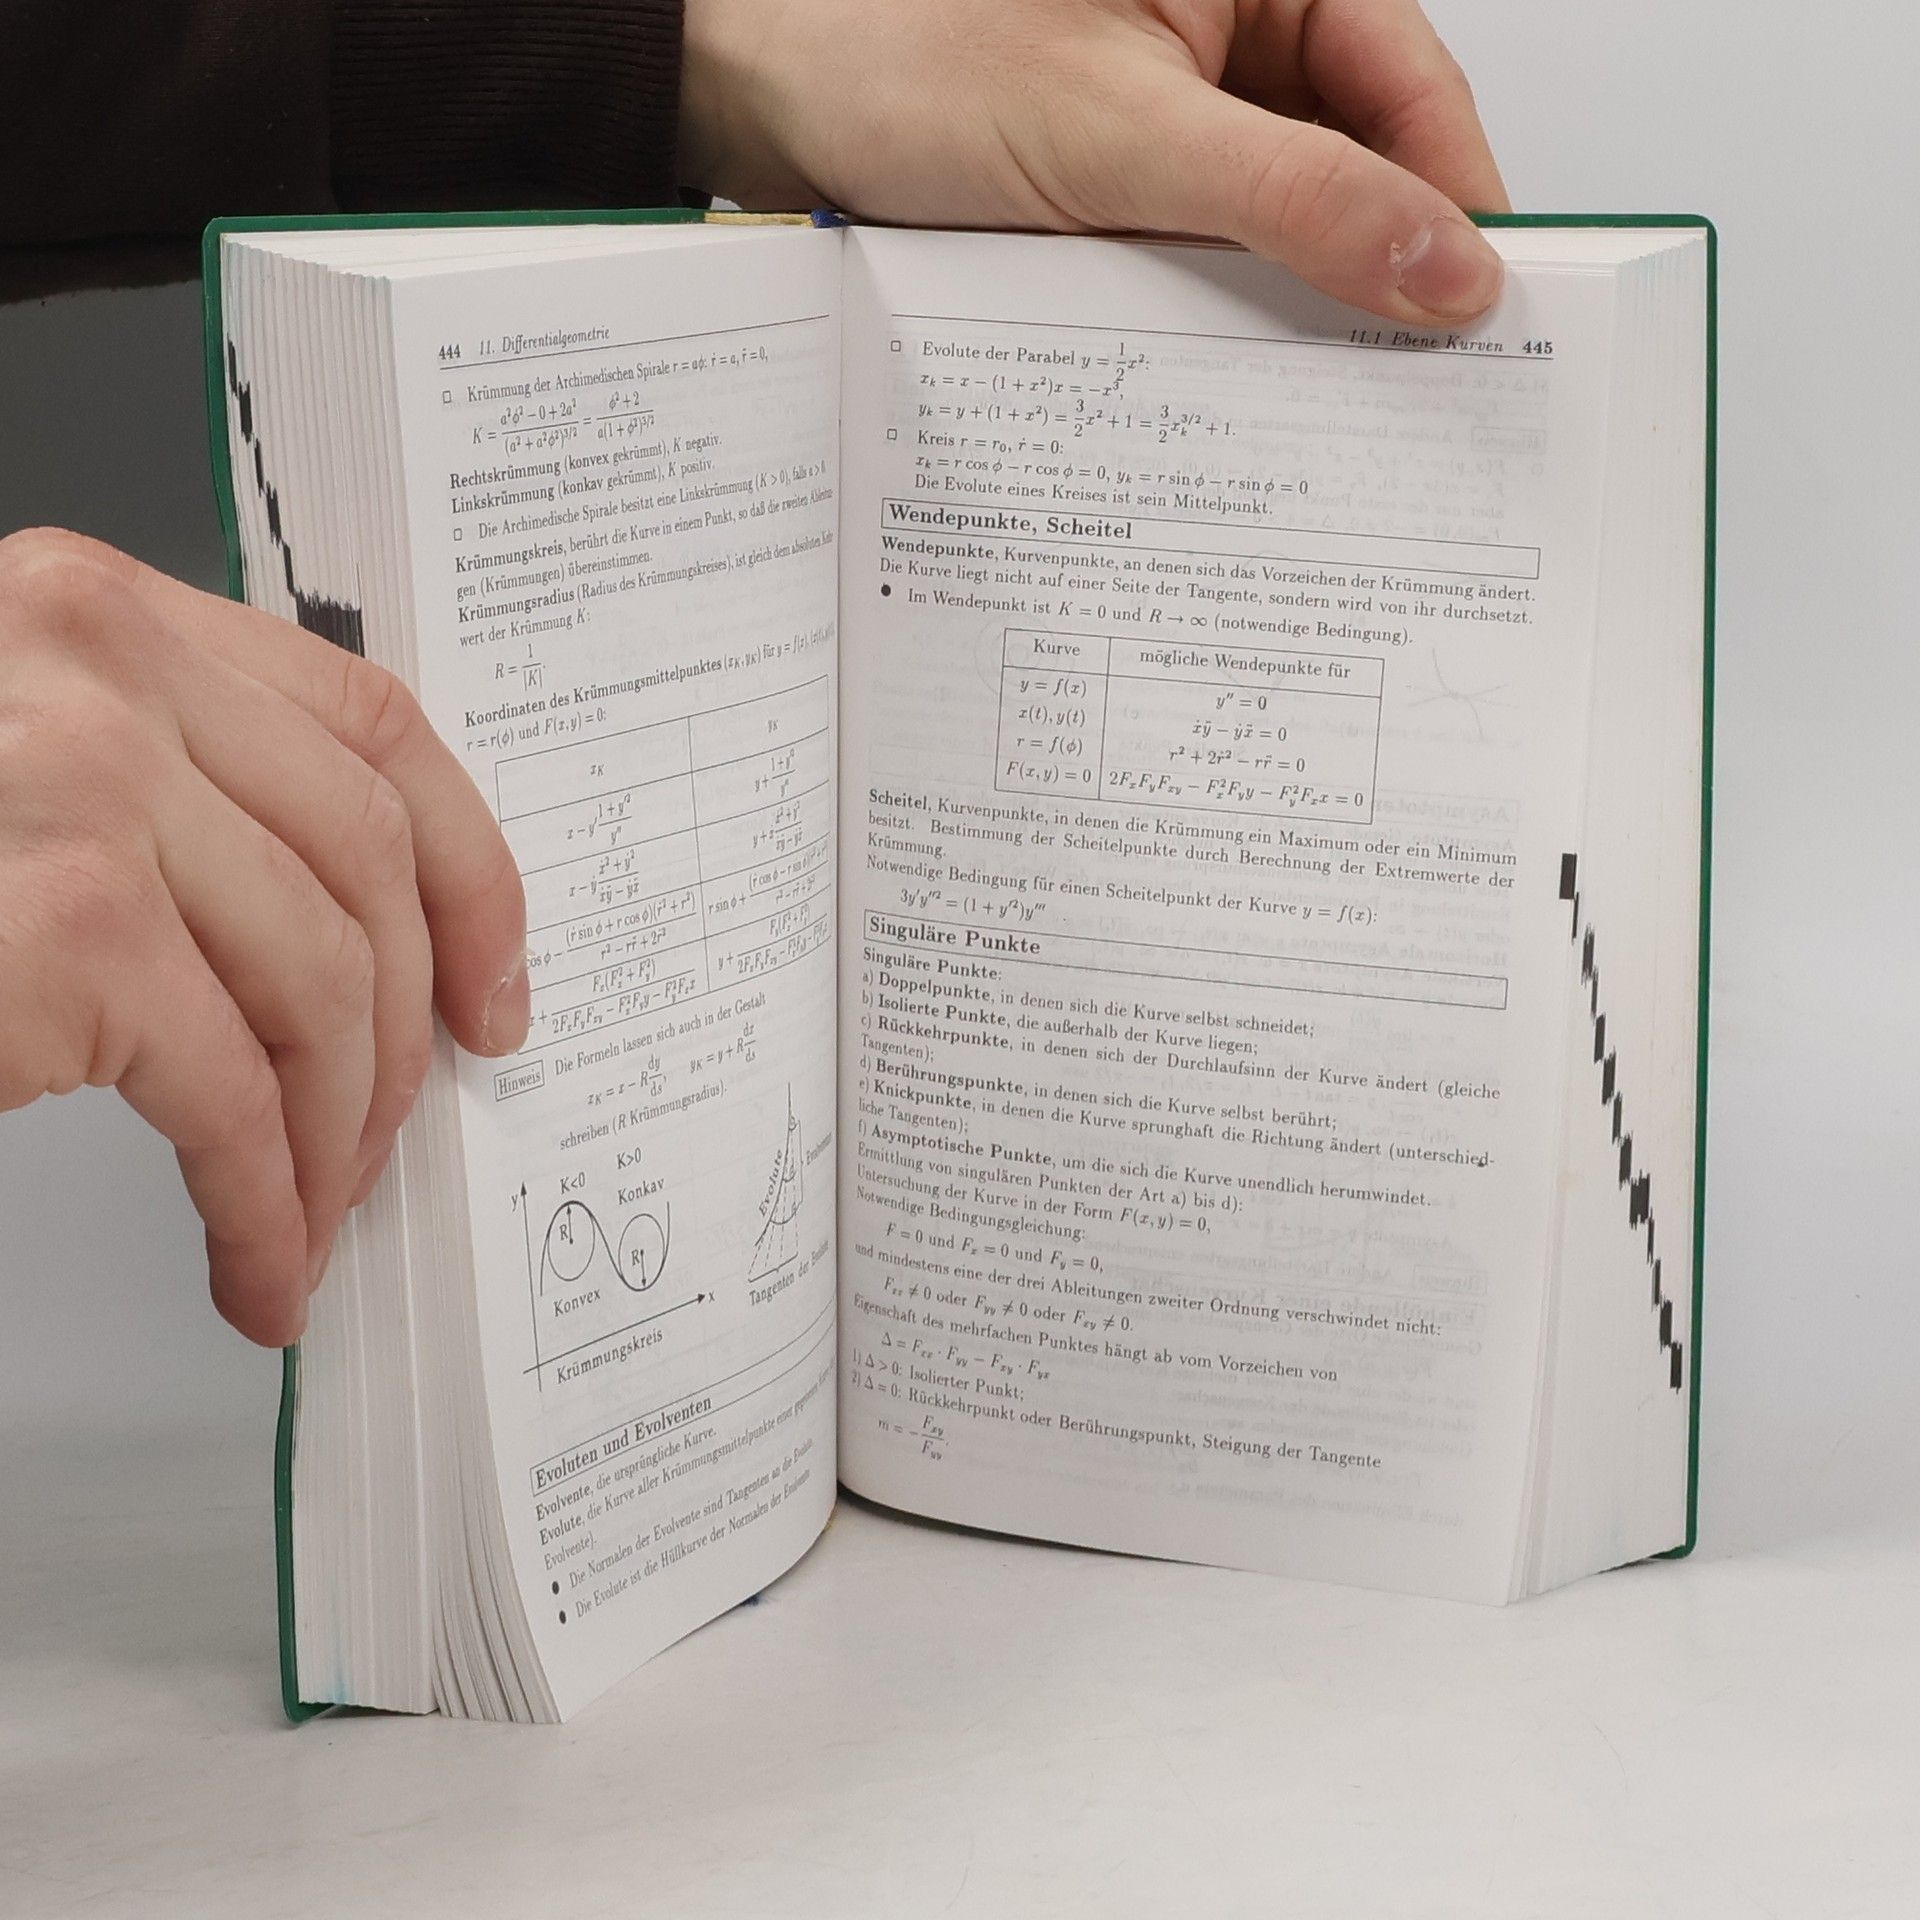 444 11. Differentialgeometrie
□ Krümmung der Archimedischen Spirale r = aϕ: ṙ = a, r̈ = 0,
K = (a²ϕ² − 0 + 2a²)/(a² + a²ϕ²)^{3/2} = (ϕ² + 2)/(a(1 + ϕ²)^{3/2})
Rechtskrümmung (konvex gekrümmt), K negativ.
Linkskrümmung (konkav gekrümmt), K positiv.
□ Die Archimedische Spirale besitzt eine Linkskrümmung (K > 0), falls a > 0
Krümmungskreis, berührt die Kurve in einem Punkt, so daß die zweiten
gen (Krümmungen) übereinstimmen.
Krümmungsradius (Radius des Krümmungskreises), ist gleich dem absoluten
wert der Krümmung K:
R = 1/|K|.
Koordinaten des Krümmungsmittelpunktes (x_K, y_K) für y = f(x),
r = r(ϕ) und F(x, y) = 0:
x_K y_K
x − y′ (1 + y′²)/y″ y + (1 + y′²)/y″
x − ẏ (ẋ² + ẏ²)/(ẋÿ − ẏẍ) y + ẋ (ẋ² + ẏ²)/(ẋÿ − ẏẍ)
cos ϕ − (ṙ sin ϕ + r cos ϕ)(ṙ² + r²)/(r² − rr̈ + 2ṙ²) r sin ϕ + (ṙ cos ϕ − r sin ϕ)
x + F_x(F_x² + F_y²)/(2F_xF_yF_xy − F_x²F_yy − F_y²F_xx) y + F_y(F_x² + F_y²)/(2F_xF_yF_xy − F_x²F_yy − F_y²F_x
Hinweis Die Formeln lassen sich auch in der Gestalt
x_K = x − R dy/ds, y_K = y + R dx/ds
schreiben (R Krümmungsradius).
y K<0 K>0
Konkav
R R
Konvex
x
Krümmungskreis
Evolute
Tangenten der Evolute
Evoluten und Evolventen
Evolvente, die ursprüngliche Kurve.
Evolute, die Kurve aller Krümmungsmittelpunkte einer gegebenen
Evolvente).
● Die Normalen der Evolvente sind Tangenten an die Evolute
● Die Evolute ist die Hüllkurve der Normalen der Evolvente
11.1 Ebene Kurven 445
□ Evolute der Parabel y = 1/2 x²:
x_k = x − (1 + x²)x = −x³,
y_k = y + (1 + x²) = 3/2 x² + 1 = 3/2 x_k^{3/2} + 1.
□ Kreis r = r₀, ṙ = 0:
x_k = r cos ϕ − r cos ϕ = 0, y_k = r sin ϕ − r sin ϕ = 0
Die Evolute eines Kreises ist sein Mittelpunkt.
Wendepunkte, Scheitel
Wendepunkte, Kurvenpunkte, an denen sich das Vorzeichen der Krümmung ändert.
Die Kurve liegt nicht auf einer Seite der Tangente, sondern wird von ihr durchsetzt.
● Im Wendepunkt ist K = 0 und R → ∞ (notwendige Bedingung).
Kurve mögliche Wendepunkte für
y = f(x) y″ = 0
x(t), y(t) ẋÿ − ẏẍ = 0
r = f(ϕ) r² + 2ṙ² − rr̈ = 0
F(x, y) = 0 2F_xF_yF_xy − F_x²F_yy − F_y²F_xx = 0
Scheitel, Kurvenpunkte, in denen die Krümmung ein Maximum oder ein Minimum
besitzt. Bestimmung der Scheitelpunkte durch Berechnung der Extremwerte der
Krümmung.
Notwendige Bedingung für einen Scheitelpunkt der Kurve y = f(x):
3y′y″² = (1 + y′²)y‴ .
Singuläre Punkte
Singuläre Punkte:
a) Doppelpunkte, in denen sich die Kurve selbst schneidet;
b) Isolierte Punkte, die außerhalb der Kurve liegen;
c) Rückkehrpunkte, in denen sich der Durchlaufsinn der Kurve ändert (gleiche
Tangenten);
d) Berührungspunkte, in denen sich die Kurve selbst berührt;
e) Knickpunkte, in denen die Kurve sprunghaft die Richtung ändert (unterschied-
liche Tangenten);
f) Asymptotische Punkte, um die sich die Kurve unendlich herumwindet.
Ermittlung von singulären Punkten der Art a) bis d):
Untersuchung der Kurve in der Form F(x, y) = 0,
Notwendige Bedingungsgleichung:
F = 0 und F_x = 0 und F_y = 0,
und mindestens eine der drei Ableitungen zweiter Ordnung verschwindet nicht:
F_xx ≠ 0 oder F_yy ≠ 0 oder F_xy ≠ 0.
Eigenschaft des mehrfachen Punktes hängt ab vom Vorzeichen von
Δ = F_xx · F_yy − F_xy · F_yx
1) Δ > 0: Isolierter Punkt;
2) Δ = 0: Rückkehrpunkt oder Berührungspunkt, Steigung der Tangente
m = −F_xy/F_yy.